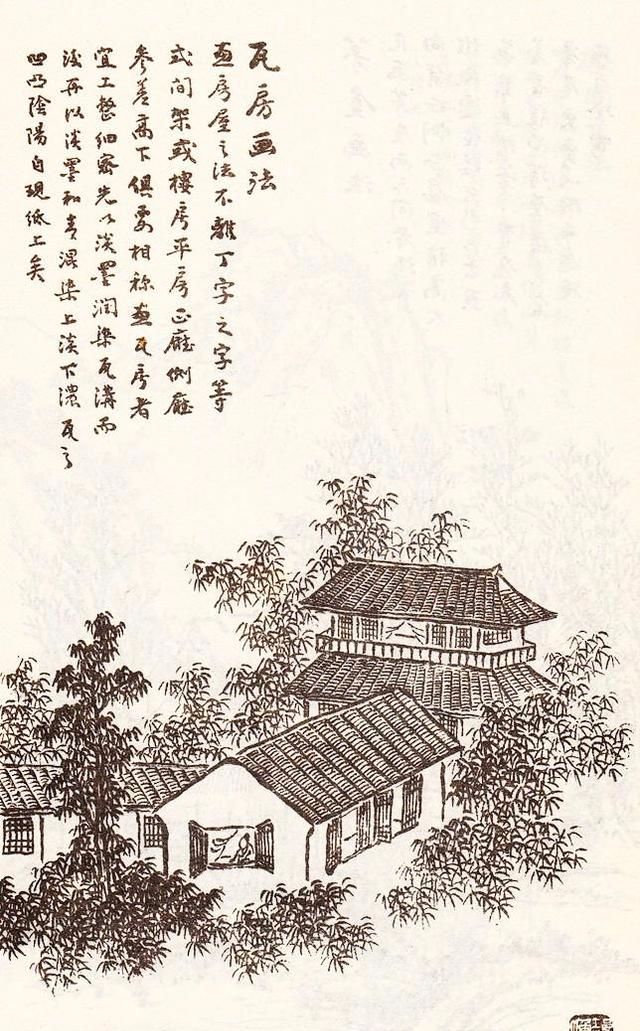 瓦房画法
画房屋之法不離丁字之字等
式间架或樓房平房正廳側廳
參差髙下俱要相称画瓦房者
宜工整细密先以淡墨润染瓦溝而
後再以淡墨和青混染上淡下濃瓦之
凹凸陰陽自現纸上矣